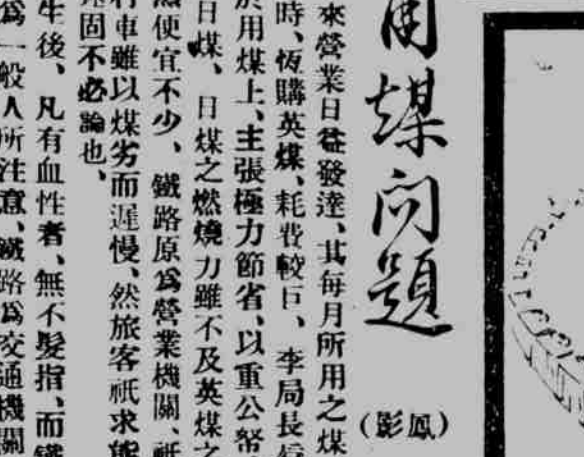 用煤問題
(鳳影)
來營業日益發達、其每月所用之煤
時、恆購英煤、耗費較巨、李局長
於用煤上、主張極力節省、以重公帑
日煤、日煤之燃燒力雖不及英煤之
然便宜不少、鐵路原爲營業機關、祇
行車雖以煤劣而遲慢、然旅客祇求能
固不必論也、
生後、凡有血性者、無不髮指、而鐵
爲一般人所注意、鐵路爲交通機關